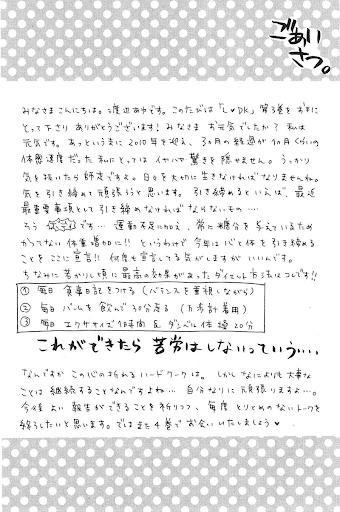 ごあい
さつ。
みなさまこんにちは。渡辺あゆです。このたびは「L♥DK」第3巻をお手に
とって下さり ありがとうございます! みなさま お元気でしたか? 私は
元気です。あっという間に2010年を迎え、3ヶ月の経過が10日くらいの
体感速度だった私にとっては イヤハヤ驚きを隠せません。うっかり
気を抜いたら師走ですよ。日々を大切に生きなければなりませんね。
気を引き締めて頑張ろうと思います。 引き締めるといえば、最近
最重要事項として引き締めなければならないもの…
そう です… 運動不足に加え、常に糖分を与えているため
かつてない 体重増加に!! というわけで 今年は心と体を引き締める
ことを ここに宣言!! 何度も宣言してる気がしますが いいんです。
ちなみに若かりし頃に最高の効果があったダイエット方法はコレです!!
① 毎日 食事日記をつける (バランスを重視しながら)
② 毎日 バームを飲んで30分走る (万歩計着用)
③ 毎日 エクササイズ1時間 & ダンベル体操20分
これができたら 苦労はしないっていう…
なんですか この心の折れるハードワークは。 しかしなによりも大事な
ことは 継続することなんですよね… 自分なりに頑張りますよ…。
今後 よい報告ができることを祈りつつ、毎度とりとめのないトークを
終了したいと思います。ではまた4巻でお会いしましょう♥